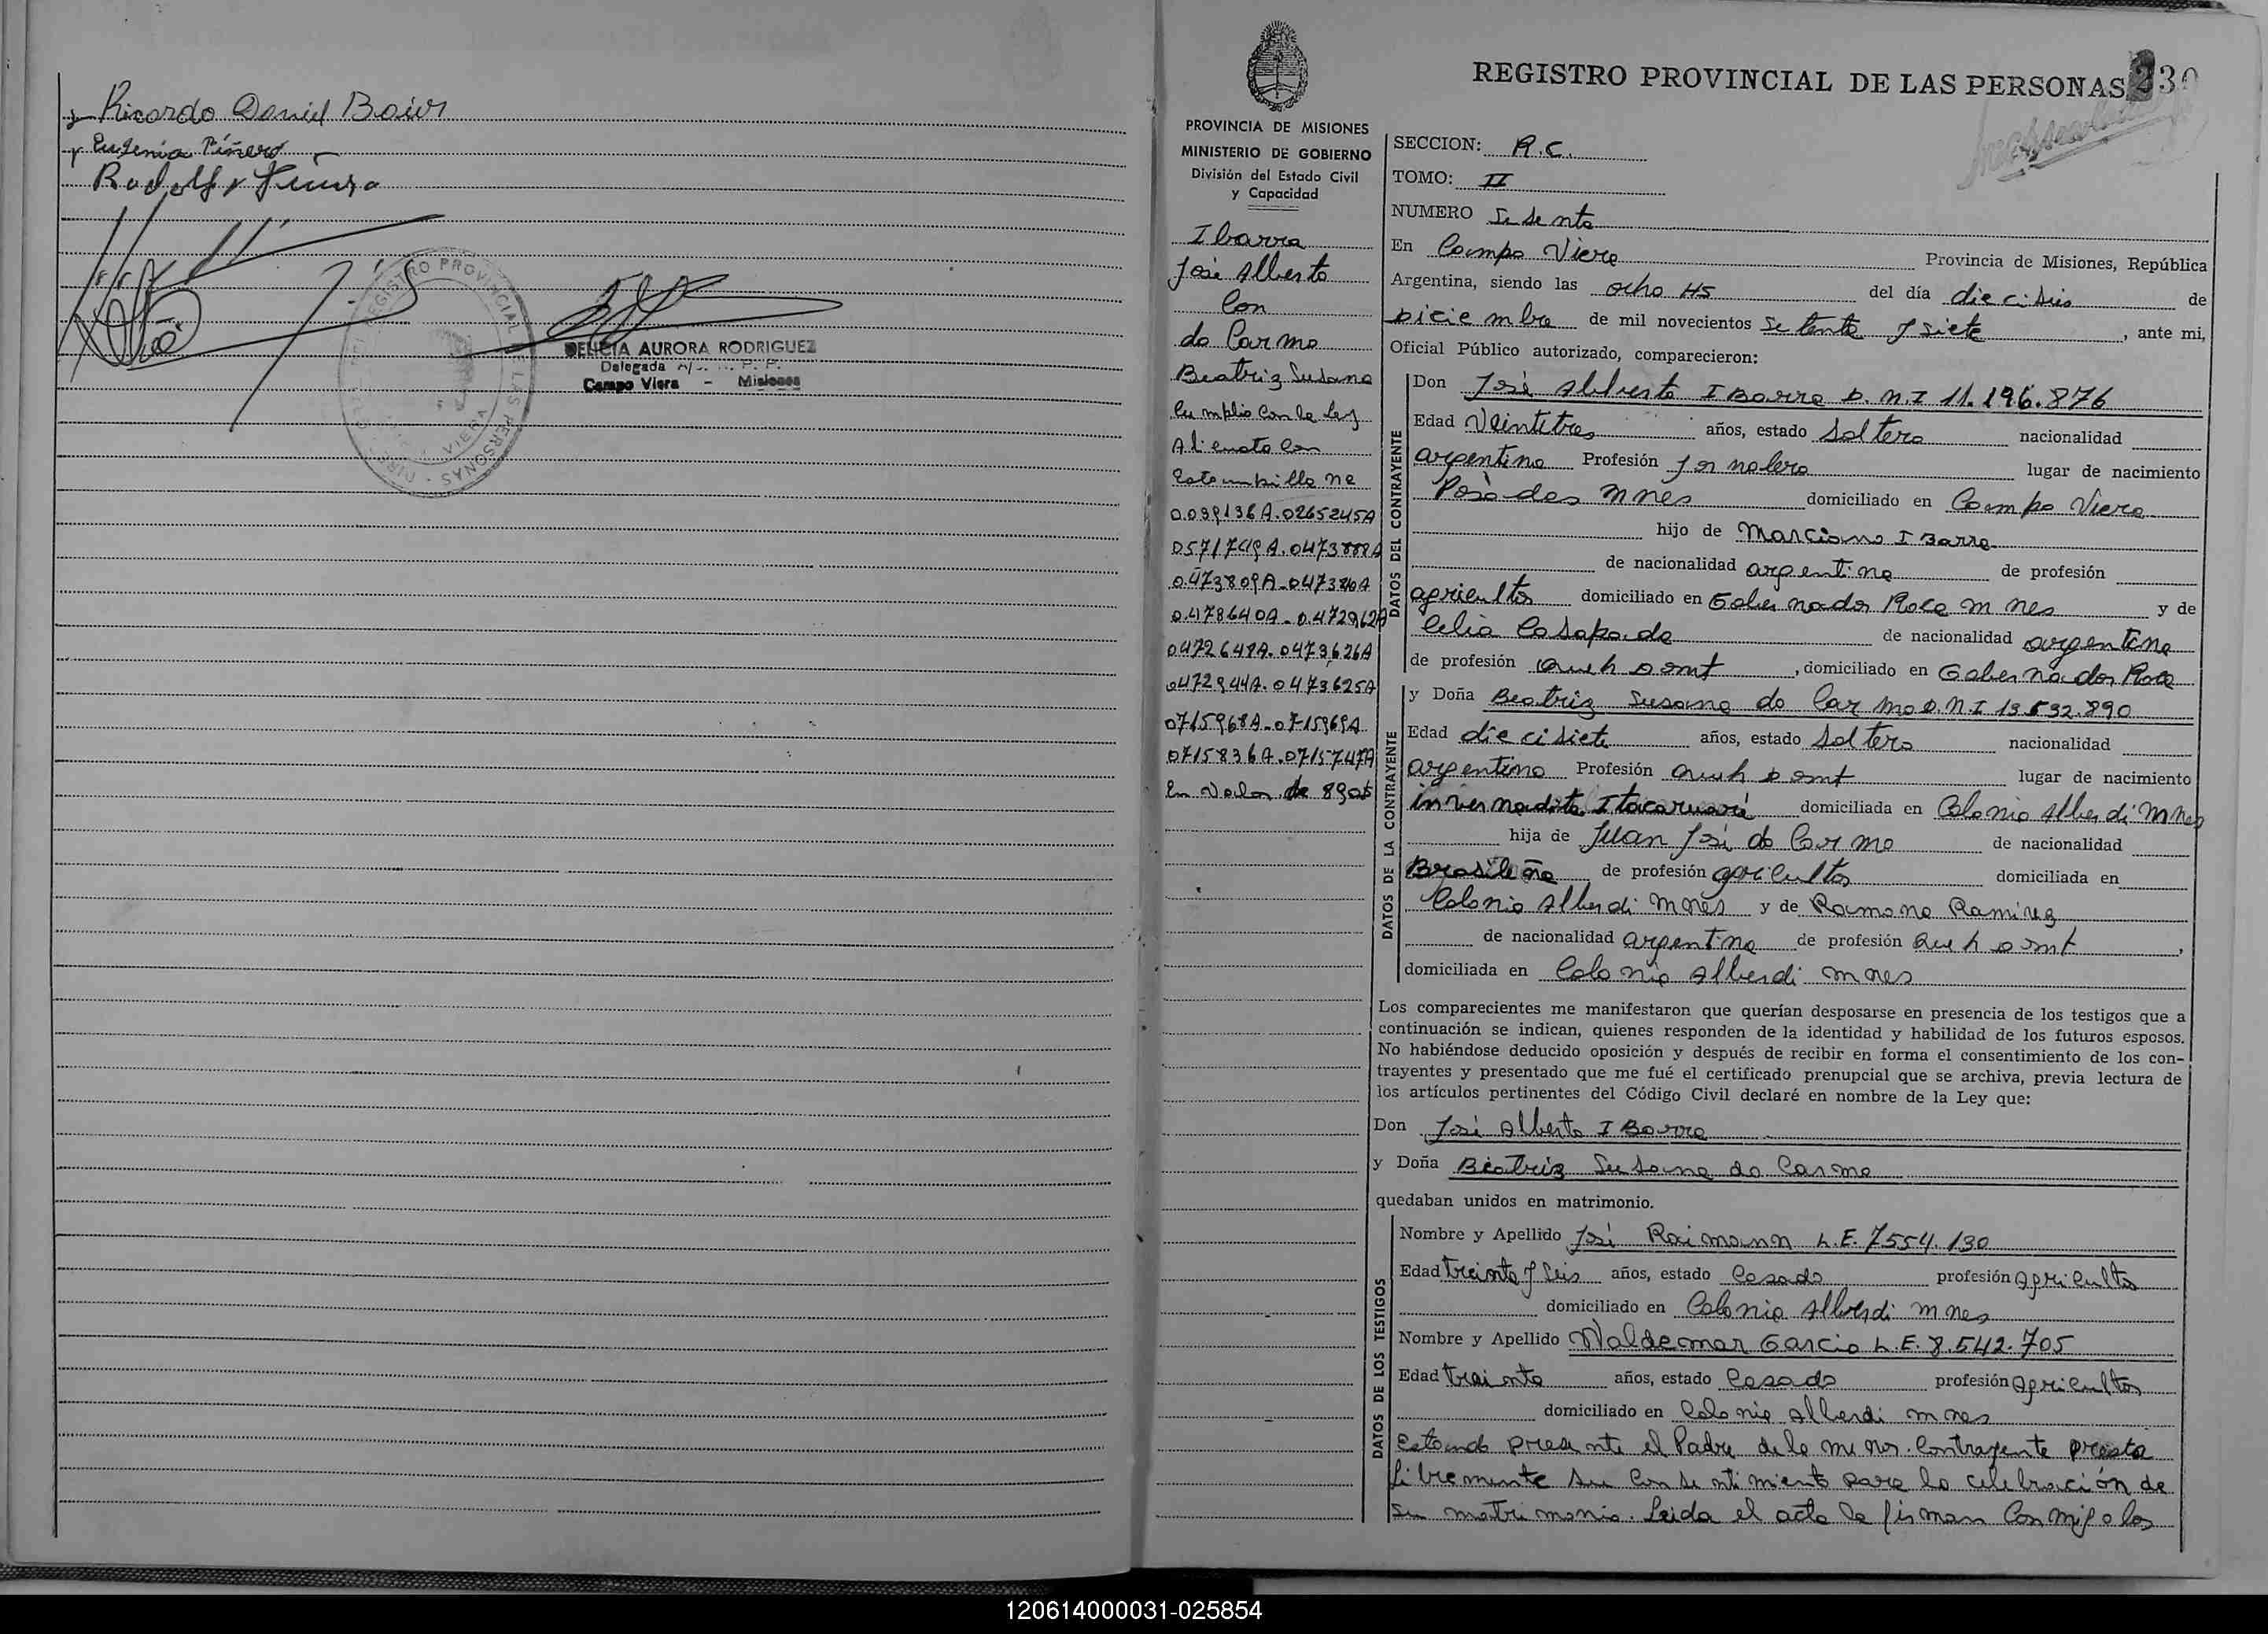 y Ricardo Daniel Boiur
y Eugenia Piñero
DELICIA AURORA RODRIGUEZ
Delegada
Campo Viera - Misiones
REGISTRO PROVINCIAL DE LAS PERSONAS
REGISTRO PROVINCIAL DE LAS PERSONAS 230
PROVINCIA DE MISIONES
MINISTERIO DE GOBIERNO
División del Estado Civil
y Capacidad
Ibarra
José Alberto
Con
do Carmo
Beatriz Susana
Cumplio Con la Ley
Al enoto con
Estampilla na
0.039136A.0265245A
0571749A.0473888A
0.473809A-047380A
0.478640A-0.472962A
0472648A.0473626A
0472944A.0473625A
0715968A-0715969A
0715836A.0715747A
En Valor de 890$
SECCION: R.C.
TOMO: II
NUMERO Sesenta
En Campo Viera Provincia de Misiones, República
Argentina, siendo las ocho HS del día dieciseis de
Diciembre de mil novecientos Setenta y siete, ante mi,
Oficial Público autorizado, comparecieron:
DATOS DEL CONTRAYENTE
Don José Alberto IBarra D.N.I 11.196.876
Edad Veintitres años, estado Soltero nacionalidad
argentina Profesión Jornalero lugar de nacimiento
Posadas Mnes domiciliado en Campo Viera
hijo de Marciano IBarra
de nacionalidad argentina de profesión
agricultor domiciliado en Gobernador Roca Mnes y de
Celia Casapada de nacionalidad argentina
de profesión Queh Domt, domiciliado en Gobernador Roca
DATOS DE LA CONTRAYENTE
y Doña Beatriz Susana do Carmo D.N.I 13.532.890
Edad diecisiete años, estado Soltera nacionalidad
argentina Profesión Queh Domt lugar de nacimiento
invernadita Itacaruaré domiciliada en Colonia Alberdi Mnes
hija de Juan José do Carmo de nacionalidad
Brasileña de profesión agricultor domiciliada en
Colonia Alberdi Mnes y de Ramona Ramirez
de nacionalidad argentina de profesión Queh Domt,
domiciliada en Colonia Alberdi Mnes
Los comparecientes me manifestaron que querían desposarse en presencia de los testigos que a
continuación se indican, quienes responden de la identidad y habilidad de los futuros esposos.
No habiéndose deducido oposición y después de recibir en forma el consentimiento de los con-
trayentes y presentado que me fué el certificado prenupcial que se archiva, previa lectura de
los artículos pertinentes del Código Civil declaré en nombre de la Ley que:
Don José Alberto IBarra
y Doña Beatriz Susana do Carmo
quedaban unidos en matrimonio.
DATOS DE LOS TESTIGOS
Nombre y Apellido José Raimann L.E. 7554.130
Edad treinta y Seis años, estado Casado profesión agricultor
domiciliado en Colonia Alberdi Mnes
Nombre y Apellido Waldemar Garcia L.E. 8.542.705
Edad treinta años, estado Casado profesión agricultor
domiciliado en Colonia Alberdi Mnes
Estando presente el Padre de la menor Contrayente presta
Libremente su Consentimiento para la celebración de
su matrimonio. Leida el acta la firman Conmigo los
120614000031-025854